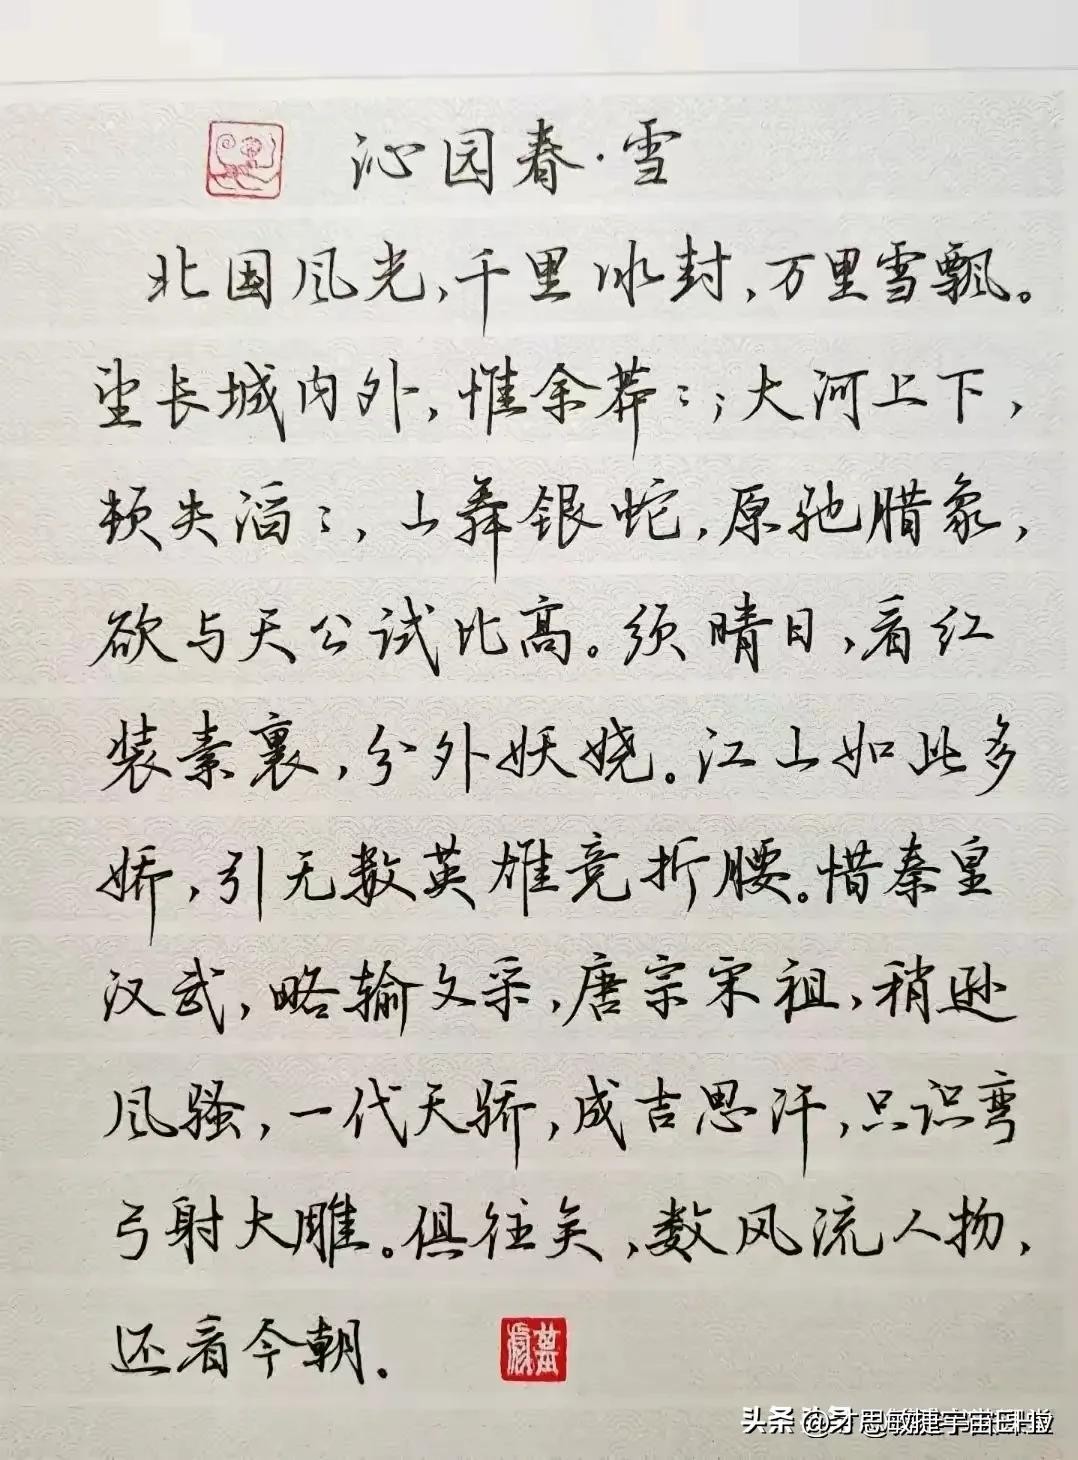 沁园春·雪
北国风光,千里冰封,万里雪飘。
望长城内外,惟余莽々;大河上下,
顿失滔々,山舞银蛇,原驰腊象,
欲与天公试比高。须晴日,看红
装素裹,分外妖娆。江山如此多
娇,引无数英雄竞折腰。惜秦皇
汉武,略输文采,唐宗宋祖,稍逊
风骚,一代天骄,成吉思汗,只识弯
弓射大雕。俱往矣,数风流人物,
还看今朝.
头条 @才思敏捷宇宙